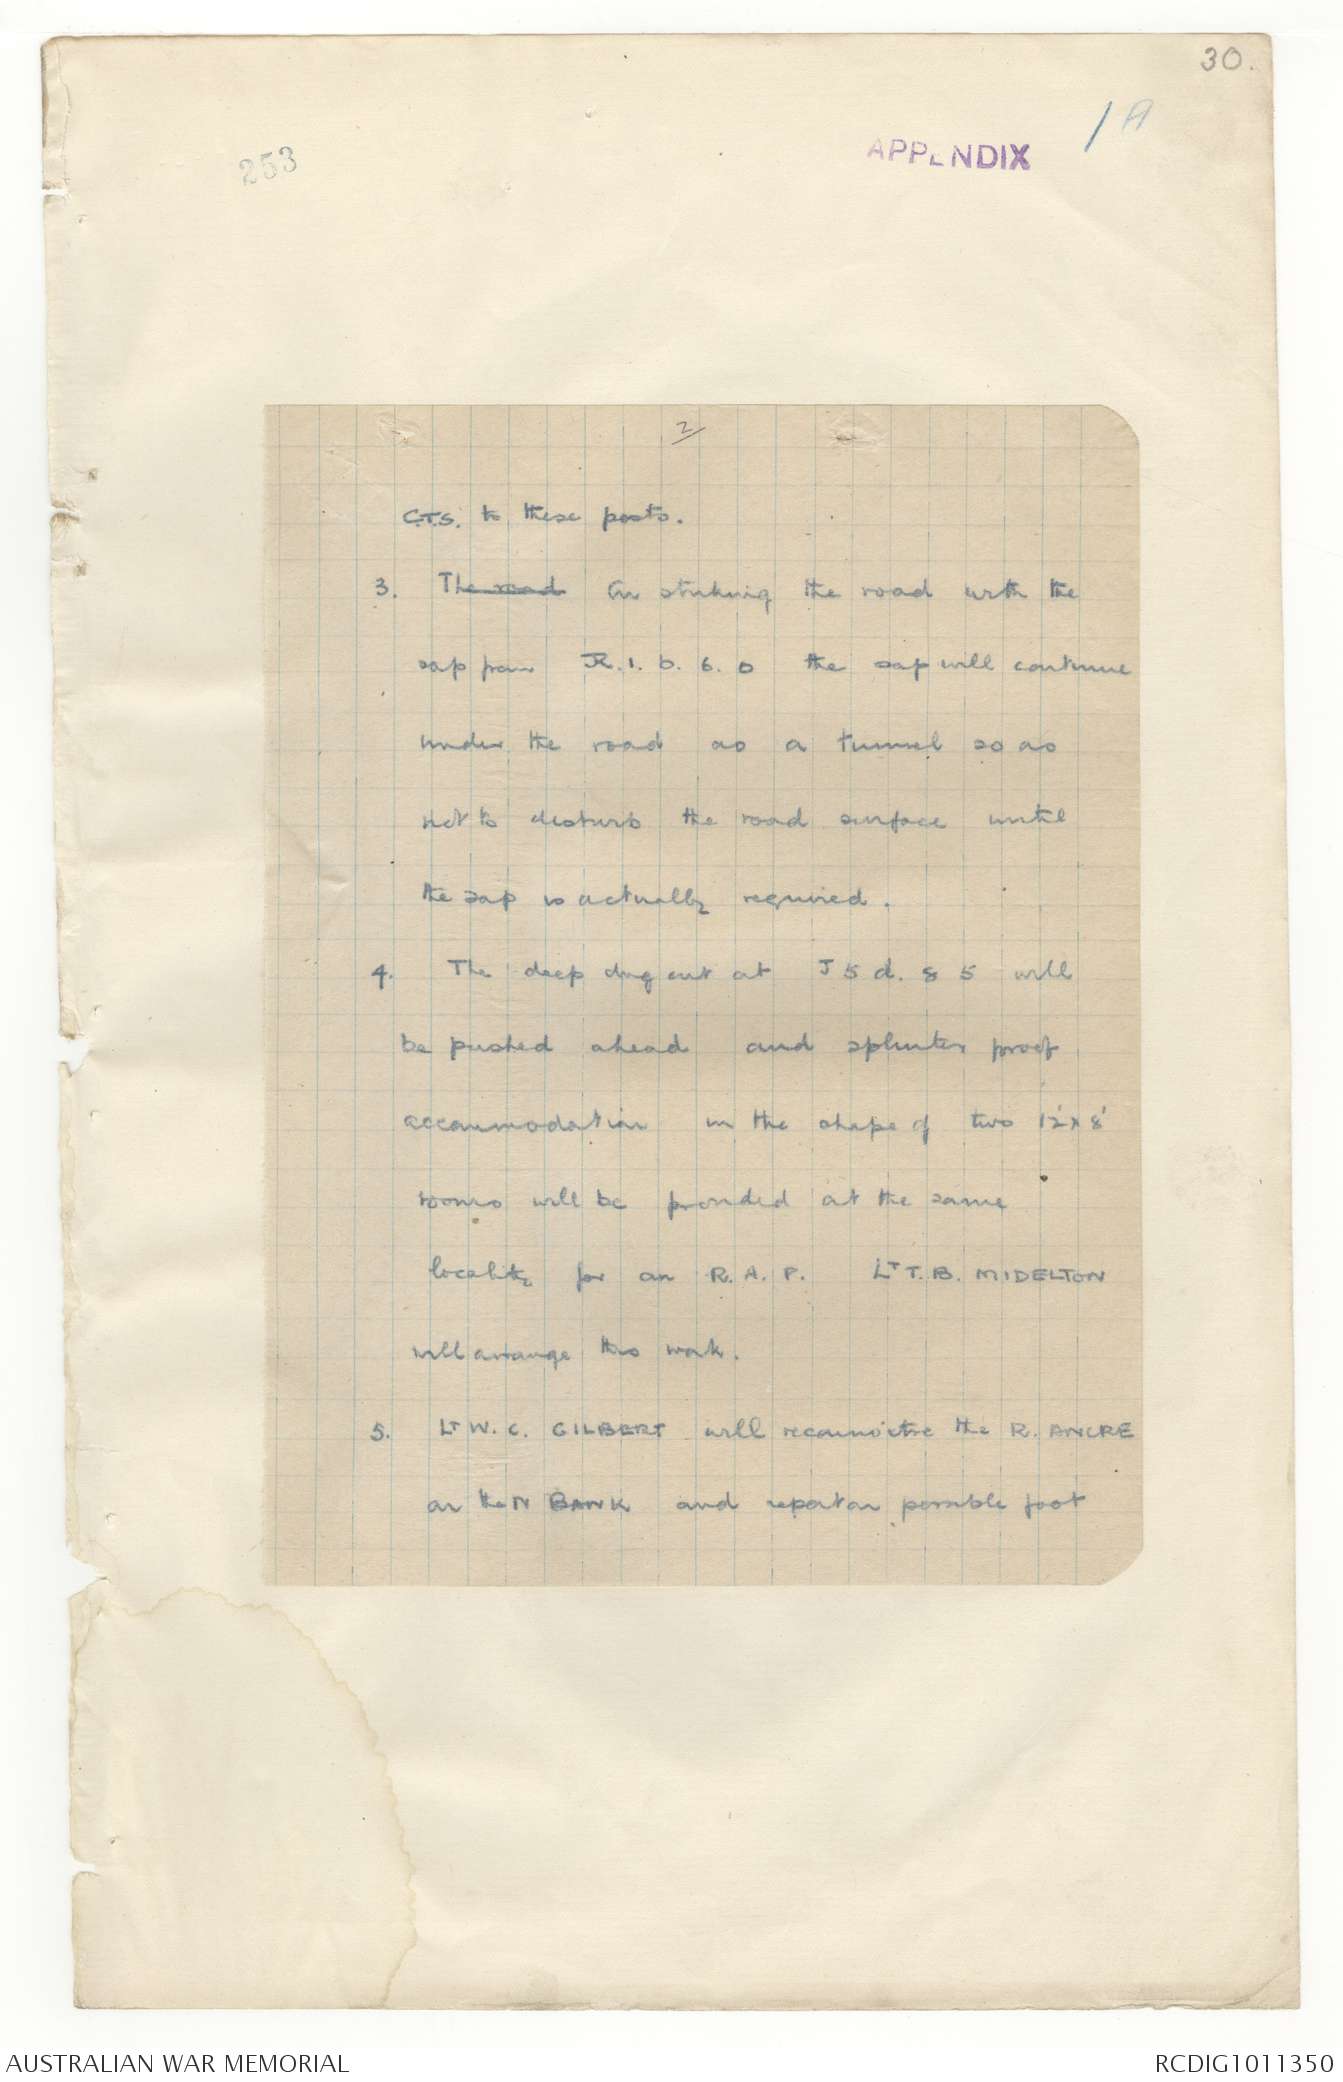 30.
1A
APPENDIX
253
2
C.T.S. to these posts.
3. The road On striking the road with the
sap from R.1.b.6.0 the sap will continue
under the road as a tunnel so as
not to disturb the road surface until
the sap is actually required.
4. The deep dug out at J 5 d. 8 5 will
be pushed ahead and splinter proof
accommodation in the shape of two 12'x 8'
rooms will be provided at the same
locality for an R.A.P. Lt T.B. MIDELTON
will arrange this work.
5. Lt W.C. GILBERT will reconnoitre the R. ANCRE
on the N BANK and report on possible foot
AUSTRALIAN WAR MEMORIAL
RCDIG1011350